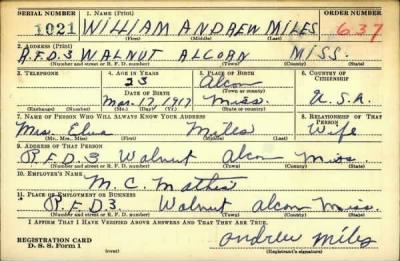 SERIAL NUMBER 1. NAME (Print) ORDER NUMBER
1021 WILLIAM ANDREW MILES 637
(First) (Middle) (Last)
2. ADDRESS (Print)
R.F.D.3 WALNUT ALCORN MISS.
(Number and street or R. F. D. number) (Town) (County) (State)
3. TELEPHONE 4. AGE IN YEARS 5. PLACE OF BIRTH 6. COUNTRY OF CITIZENSHIP
23 Alcorn
DATE OF BIRTH (Town or county)
Mar. 17 1917 Miss. U.S.A.
(Exchange) (Number) (Mo.) (Day) (Yr.) (State or country)
7. NAME OF PERSON WHO WILL ALWAYS KNOW YOUR ADDRESS 8. RELATIONSHIP OF THAT PERSON
Mrs. Miles Wife
(Mr., Mrs., Miss) (First) (Middle) (Last)
9. ADDRESS OF THAT PERSON
R.F.D.3 Walnut Alcorn Miss.
(Number and street or R. F. D. number) (Town) (County) (State)
10. EMPLOYER'S NAME
M. C. Mathis
11. PLACE OF EMPLOYMENT OR BUSINESS
R.F.D3. Walnut Alcorn Miss.
(Number and street or R. F. D. number) (Town) (County) (State)
I AFFIRM THAT I HAVE VERIFIED ABOVE ANSWERS AND THAT THEY ARE TRUE.
REGISTRATION CARD
D. S. S. Form 1 andrew miles
(Registrant's signature)